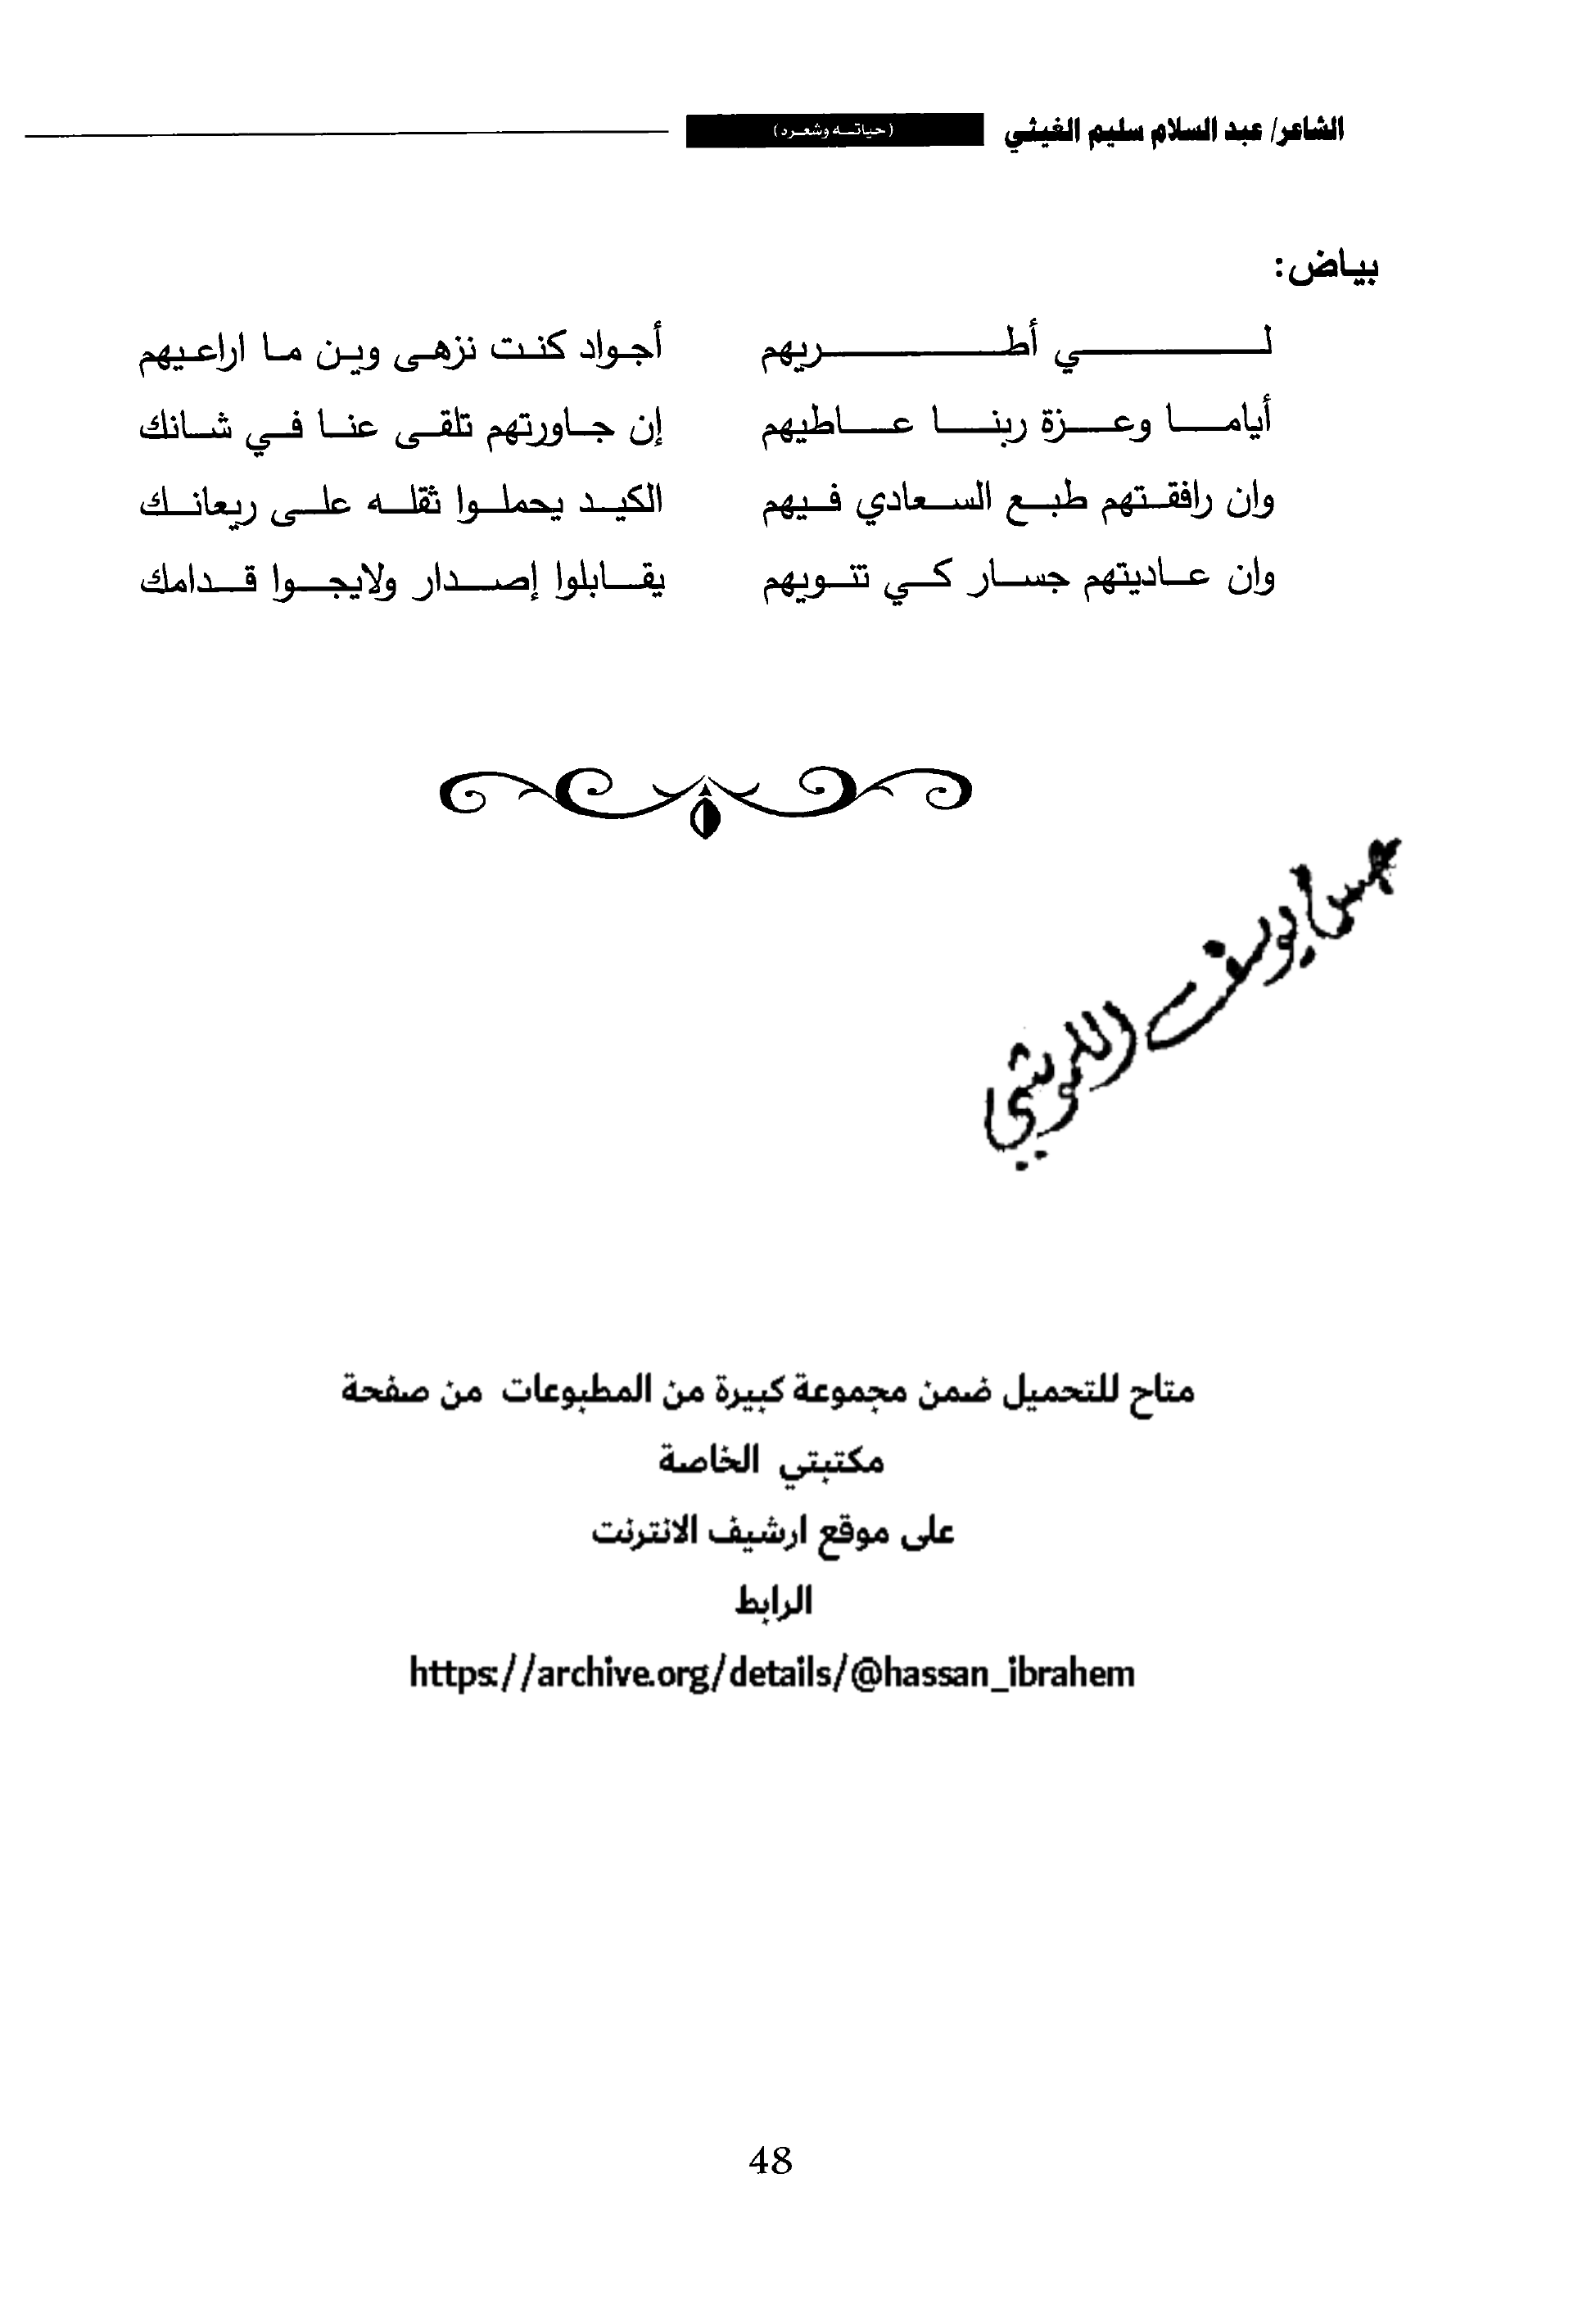 الشاعر/ عبد السلام سليم الغيثي (حياتـه وشعـره)
بياض:
لي أطريهم أجواد كنت نزهى وين ما اراعيهم
أياما وعزة ربنا عاطيهم إن جاورتهم تلقى عنا في شانك
وان رافقتهم طبع السعادي فيهم الكيد يحملوا ثقله على ريعانك
وان عاديتهم جسار كي تتويهم يقابلوا إصدار ولايجوا قدامك
يوسف
متاح للتحميل ضمن مجموعة كبيرة من المطبوعات من صفحة
مكتبتي الخاصة
على موقع ارشيف الانترنت
الرابط
https://archive.org/details/@hassan_ibrahem
48